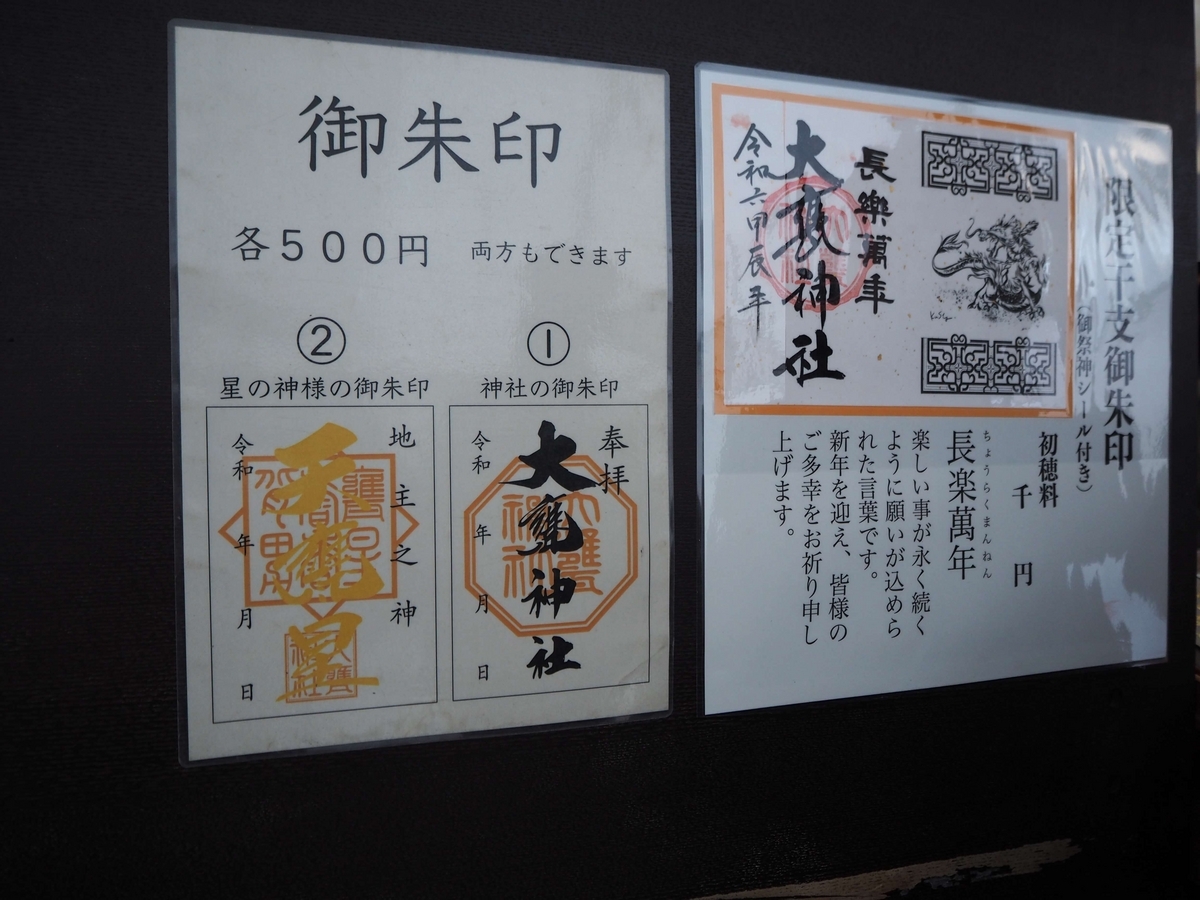 御朱印
各５００円 両方もできます
①
神社の御朱印
奉拝
大甕神社
令和 年 月 日
②
星の神様の御朱印
地主之神
天甕星
令和 年 月 日
限定干支御朱印
（御祭神シール付き）
初穂料 千円
長楽萬年
ちょうらくまんねん
楽しい事が永く続く
ように願いが込めら
れた言葉です。
新年を迎え、皆様の
ご多幸をお祈り申し
上げます。
長樂萬年
大甕神社
令和六甲辰年